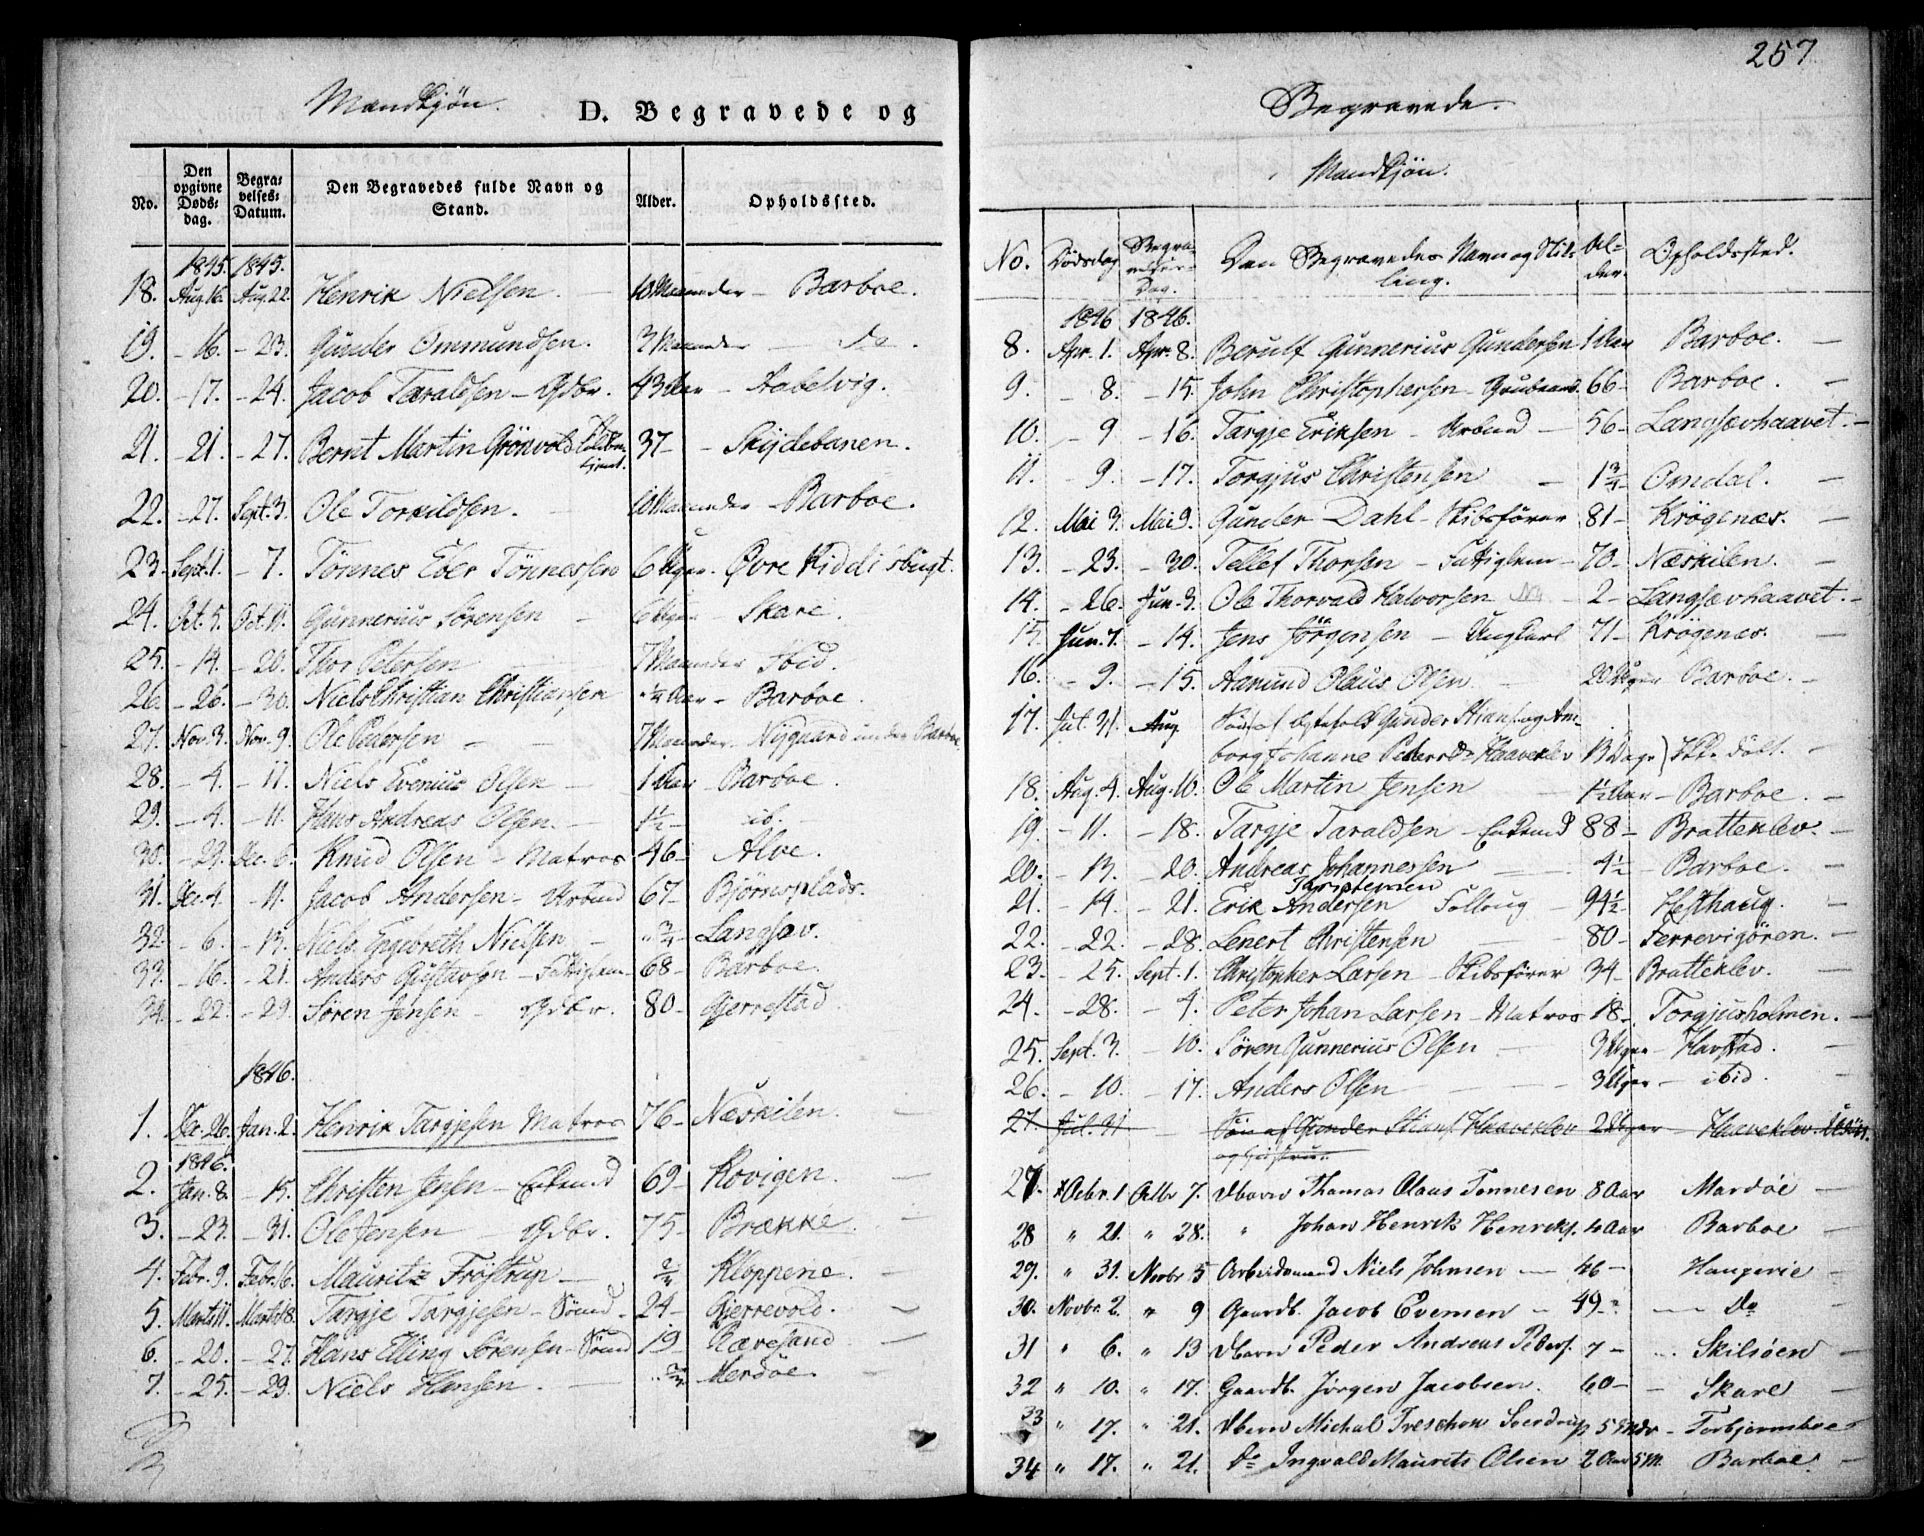 Mandkjøn.
D. Begravede og
No.
Den opgivne Døds-dag.
Begra-velses-Datum.
Den Begravedes fulde Navn og Stand.
Alder.
Opholdssted.
1845. 1845.
18. Aug. 16. Aug. 22. Henrik Nielsen. 10 Maaneder - Barboe.
19. - 16. - 23. Gunder Ommundsen. 3 Maaneder - do.
20. - 17. - 24. Jacob Taraldsen - Gdbr. 43 Aar - Aabelvig.
21. - 21. - 27. Bernt Martin Grönvold 37 - - Skydebanen.
22. - 27. Sept. 3. Ole Torkildsen. 10 Maaneder - Barboe.
23. Sept. 1. - 7. Tönnes Eber Tönnessen 6 Uger. Øvre Kiddisbugt.
24. Oct. 5. Oct. 11. Gunnerius Sörensen - 6 Uger - Skare.
25. - 14. - 20. Thor Petersen 7 Maaneder Ibid.
26. - 26. - 30. Niels Christian Christiansen 1/4 Aar - Barboe.
27. Nov. 3. Nov. 9. Ole Petersen - - 7 Maaneder. Nygaard under Barboe
28. - 4. - 11. Niels Evenius Olsen - 1 Aar - Barboe.
29. - 4. - 11. Hans Andreas Olsen. - 1 1/2 - ib.
30. - 29. Dec. 6. Knud Olsen - Matros 46 - Alve.
31. Dec. 4. - 11. Jacob Andersen - Arbmd 67 - Bjørnsplads.
32. - 6. - 13. Niels Engebreth Nielsen - " 3/4 - Langsæv.
33. - 16. - 21. Anders Gustavsen - Fattiglem - 68 - Barboe.
34. - 22. - 29. Sören Jensen - Gdbr. 80 - Gjerrestad
1846.
1. Dec. 26. Jan. 2. Henrik Targjesen Matros 76 - Næskilen.
1846.
2. Jan. 8. - 15. Christen Jensen - Enkemd 69 - Kovigen.
3. - 23. - 31. Ole Jensen - Gdbr. 75 - Brække.
4. Febr. 9. Febr. 16. Mauritz Fröstrup - 2/4 - Kloppene.
5. Marts 11. Marts 18. Targje Targjesen - Sömd - 24 - Gjerrevold.
6. - 20. - 27. Hans Elling Sörensen - Sömd 19 - Rævesand
7. - 25. - 29. Niels Hansen. Merdöe.
257
Begravede.
Mandkjøn.
No. Dødsdag Begravelses-Dag. Den Begravedes Navn og Stilling. Alder. Opholdssted.
1846 1846.
8. Apr. 1. Apr. 8. Berulf Gunnerius Gundersen 1 Aar Barboe.
9. - 8. - 15. John Christophersen - 66 - Barboe.
10. - 9 - 16. Targje Eriksen - Arbmd - 56 - Langsævhaavet.
11. - 9. - 17. Torgjus Christensen - 1 3/4 - Omdal.
12. Mai 3. Mai 9. Gunder Dahl - Skibsfører 81 - Krögenæs.
13. - 23. - 30. Tellef Thorsen - Fattiglem - 70 - Næskilen.
14. - 26. Jun. 3. Ole Thorvald Halvorsen 2 - Langsævhaavet.
15. Jun. 7. - 14. Jens Jörgensen - Ungkarl 71 - Krögenæs.
16. - 9. - 15. Aanund Olaus Olsen 20 Uger Barboe.
17. Jul. 31. Aug. Sön af Gunder Stians. og
borg Johanne Pedersd. Haaveklev 13 Dage
18. Aug. 4. Aug. 10. Ole Martin Jensen 1 1/2 Aar - Barboe.
19 - 11. - 18. Targje Taraldsen - Enkemd 88 - Bratteklev.
20. - 13. - 20. Andreas Johannessen 4 1/2 - Barboe.
21. - 14. - 21. Erik Andersen 94 1/2 - Hesthaug.
22. - 22. - 28. Lenert Christensen 80 - Ferrevigören.
23. - 25. Sept. 1. Christopher Larsen - Skibsfører 34 - Bratteklev.
24 - 28. - 4. Peter Johan Larsen - Matros - 18 - Torgjusholmen.
25. Sept. 3. - 10. Sören Gunnerius Olsen 3 Uger - Havstad.
26. - 10. - 17. Anders Olsen 3 Uger - ibid.
27. Jul. 31 Sön af Gunder Stians. Haaveklev 2 Uger - Haaveklev.
og Hustrue
27. Octbr. 1 Octbr 7. Ubarn Thomas Olaus Tonnesen 8 Aar Mardøe
28 " 21. " 28. " Johan Henrik Henriks. 4 Aar Barboe
29. " 31. Novbr 5 Arbeidsmand Niels Johnsen 46 - Haugerie
30. Novbr. 2. " 9 Gaardb. Jacob Evensen - 49 - Do
31 " 6. " 13 Ubarn Peder Andreas Peders. 7 - Skilsöen
32 " 10. " 17. Gaardb. Jörgen Jacobsen. 60 - Skare
33 " 17. " 21. Ubarn Michal Treschow Sverdrup Torbjørnsboe
34 " 17. " 21. Do Ingvald Maurits Olsen 2 Aar 5 M. Barboe.